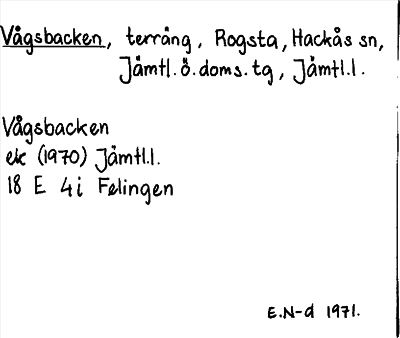 Vågsbacken, terräng, Rogsta, Hackås sn,
Jämtl. ö. doms. tg, Jämtl. l.
Vågsbacken
ek (1970) Jämtl. l.
18 E 4 i Felingen
E.N-d 1971.